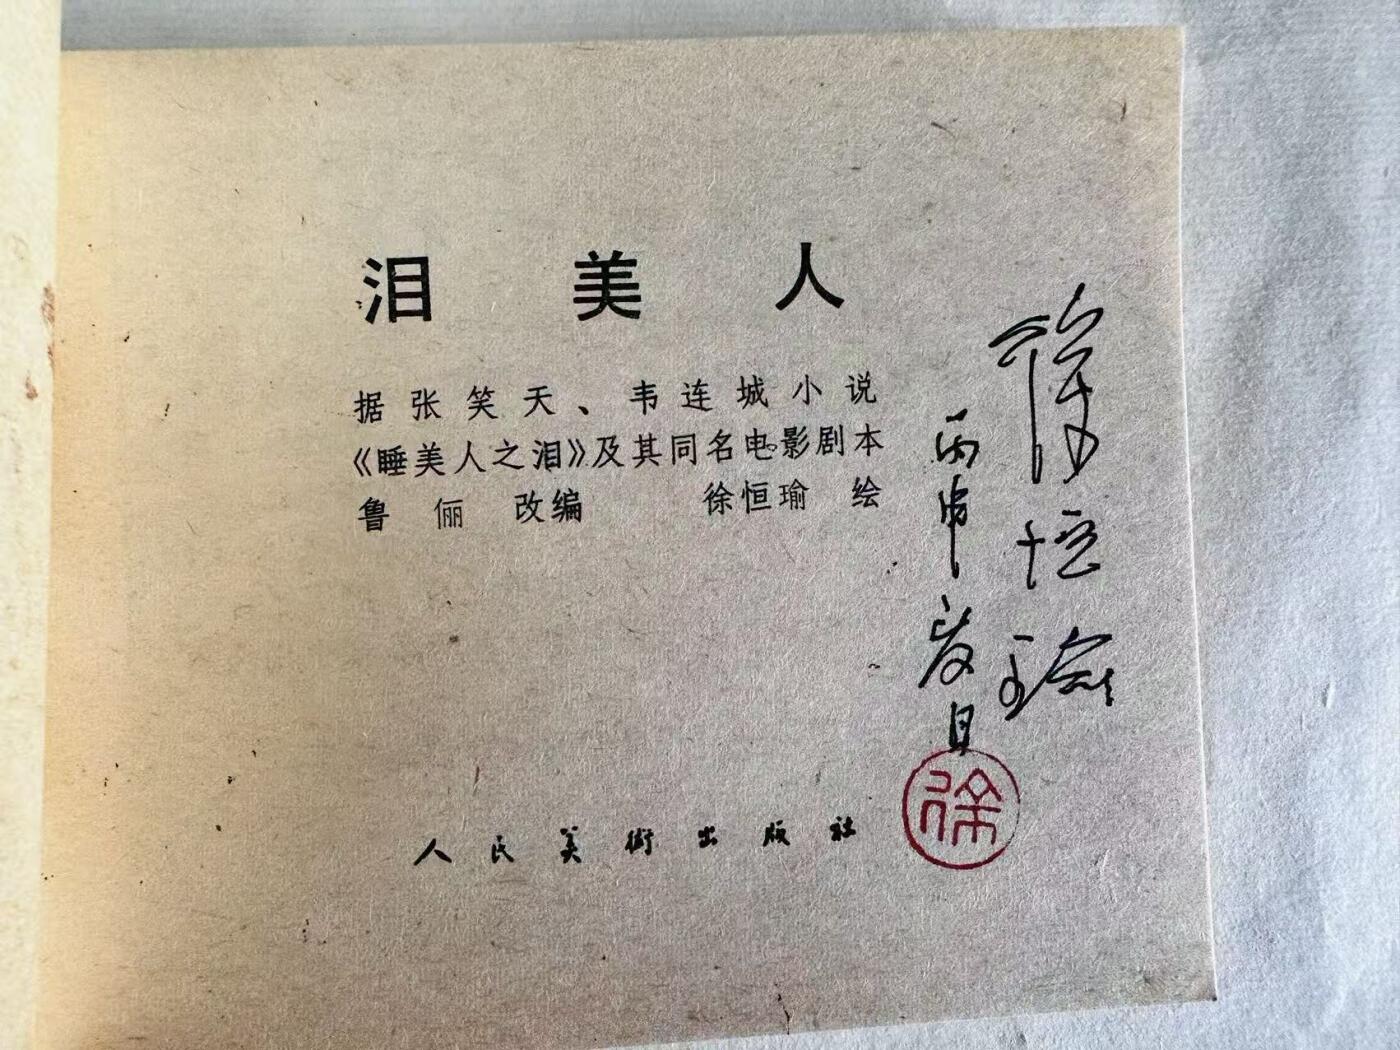 泪美人
据张笑天、韦连城小说
《睡美人之泪》及其同名电影剧本
鲁俪 改编 徐恒瑜 绘
人民美術出版社
徐恒瑜
丙申夏日
徐